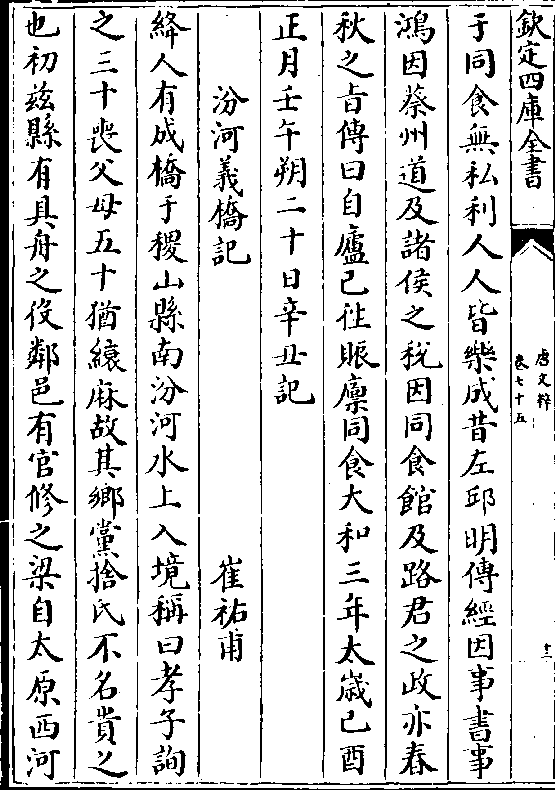 欽定四庫全書
唐文粹
卷七十五
十三
于同食無私利人人皆樂成昔左邱明傳經因事書事
鴻因蔡州道及諸侯之税因同食館及路君之政亦春
秋之㫖傳曰自廬已徃賑廪同食大和三年太歲己酉
正月壬午朔二十日辛丑記
汾河義橋記
崔祐甫
絳人有成橋于稷山縣南汾河水上入境稱曰孝子詢
之三十喪父母五十猶縗麻故其鄉黨捨氏不名貴之
也初兹縣有具舟之役鄰邑有官修之梁自太原西河